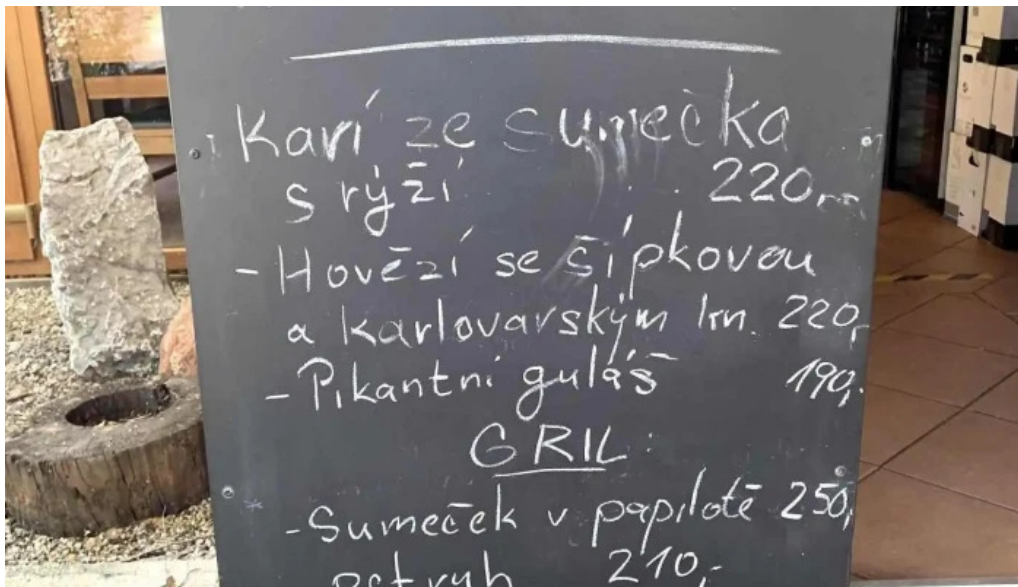 Karí ze sumečka
s rýží 220,-
- Hovězí se šípkovou
a karlovarským kn. 220,-
- Pikantní guláš 190,-
GRIL:
- Sumeček v papilotě 250,-
pstruh 210,-